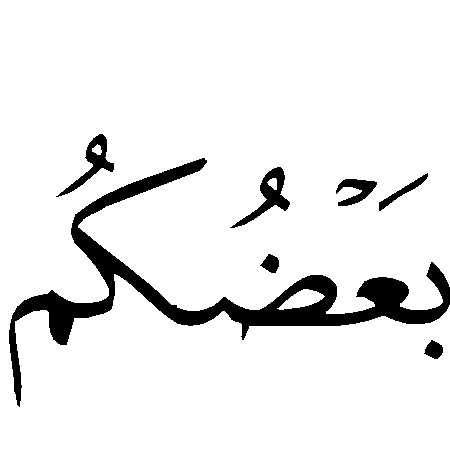 بَعْضُكُم